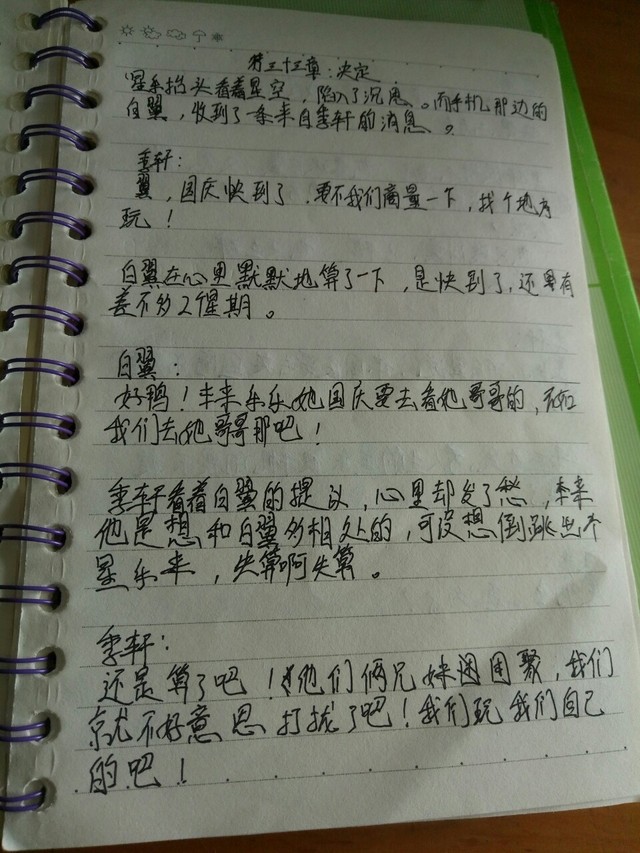 第三十三章：决定
星乐抬头看着星空，陷入了沉思。而手机那边的
白翼，收到了一条来自季轩的消息。
季轩：
翼，国庆快到了，要不我们商量一下，找个地方
玩！
白翼在心里默默地算了一下，是快到了，还有
差不多2个星期。
白翼：
好鸭！本来乐乐她国庆要去看她哥哥的，不如
我们去她哥哥那吧！
季轩看着白翼的提议，心里却发了愁，本来
他是想和白翼多相处的，可没想倒跳出个
星乐来，失算啊失算。
季轩：
还是算了吧！他们俩兄妹团团聚，我们
就不好意思打扰了吧！我们玩我们自己
的吧！